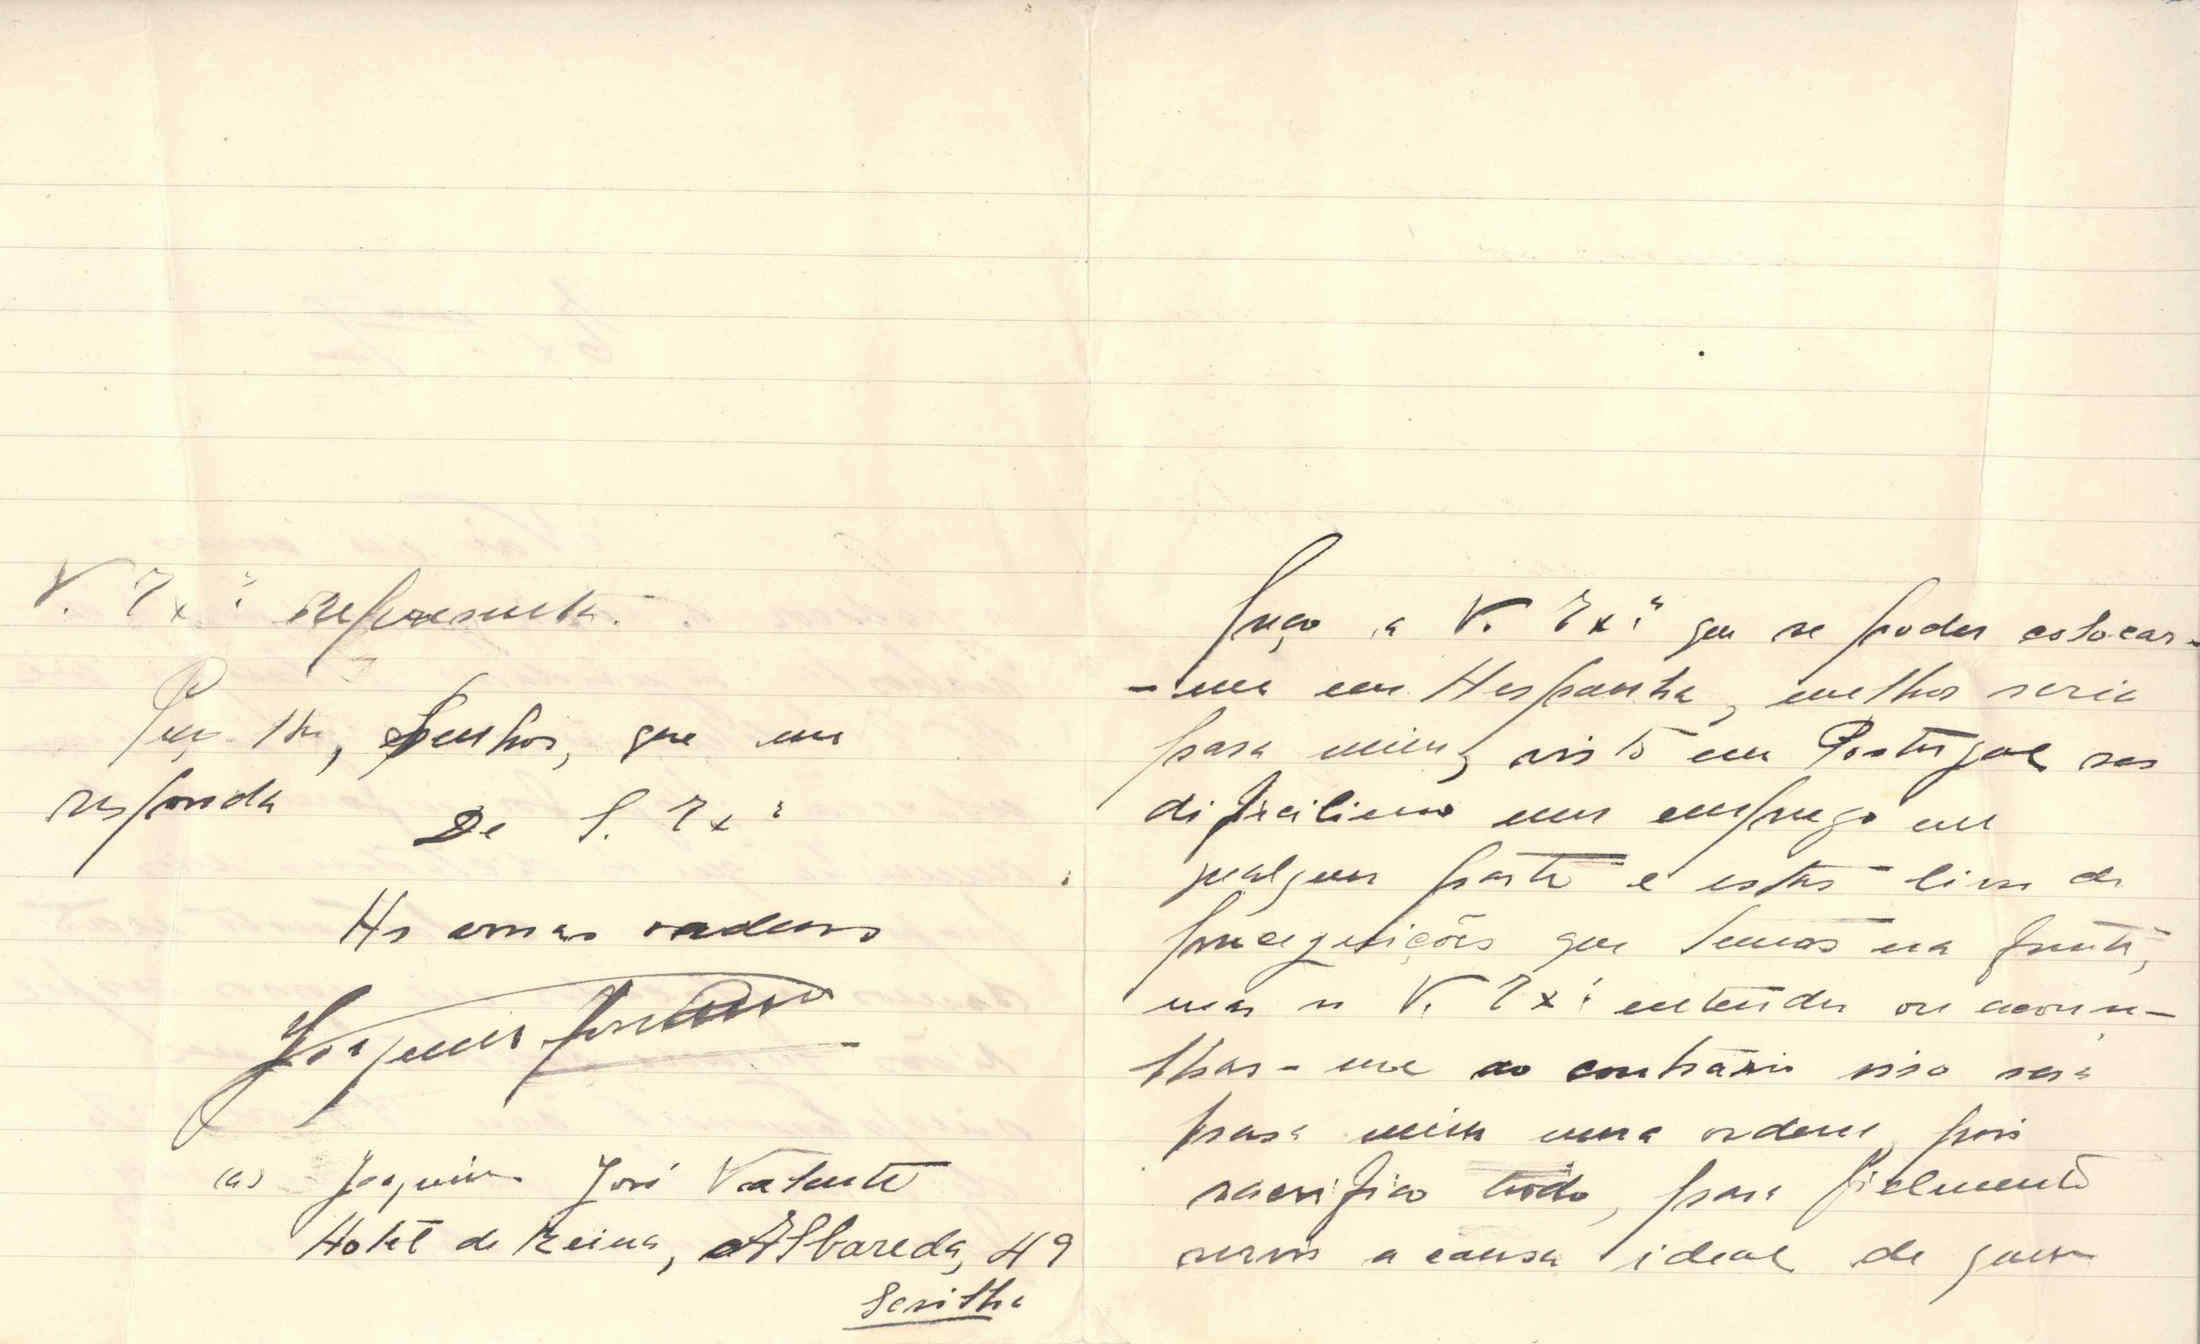 V. Ex.ª representa.
Peço-lhe, Senhor, que me
responda
De S. Ex.ª
As ornas ordens
Joaquim José Valente
(a) Joaquim José Valente
Hotel de Reina, Albareda, 49
Sevilha
Peço a V. Ex.ª que se poder colocar-
-me em Hespanha, melhor seria
para mim, visto em Portugal ser
dificilimo um emprego em
qualquer parte e estar livre de
preceguições que temos na frente,
mas se V. Ex.ª entender ou aconse-
lhar-me ao contrário isso será
para mim uma ordem, pois
sacrifico todo, para fielmente
servir a causa ideal de quem